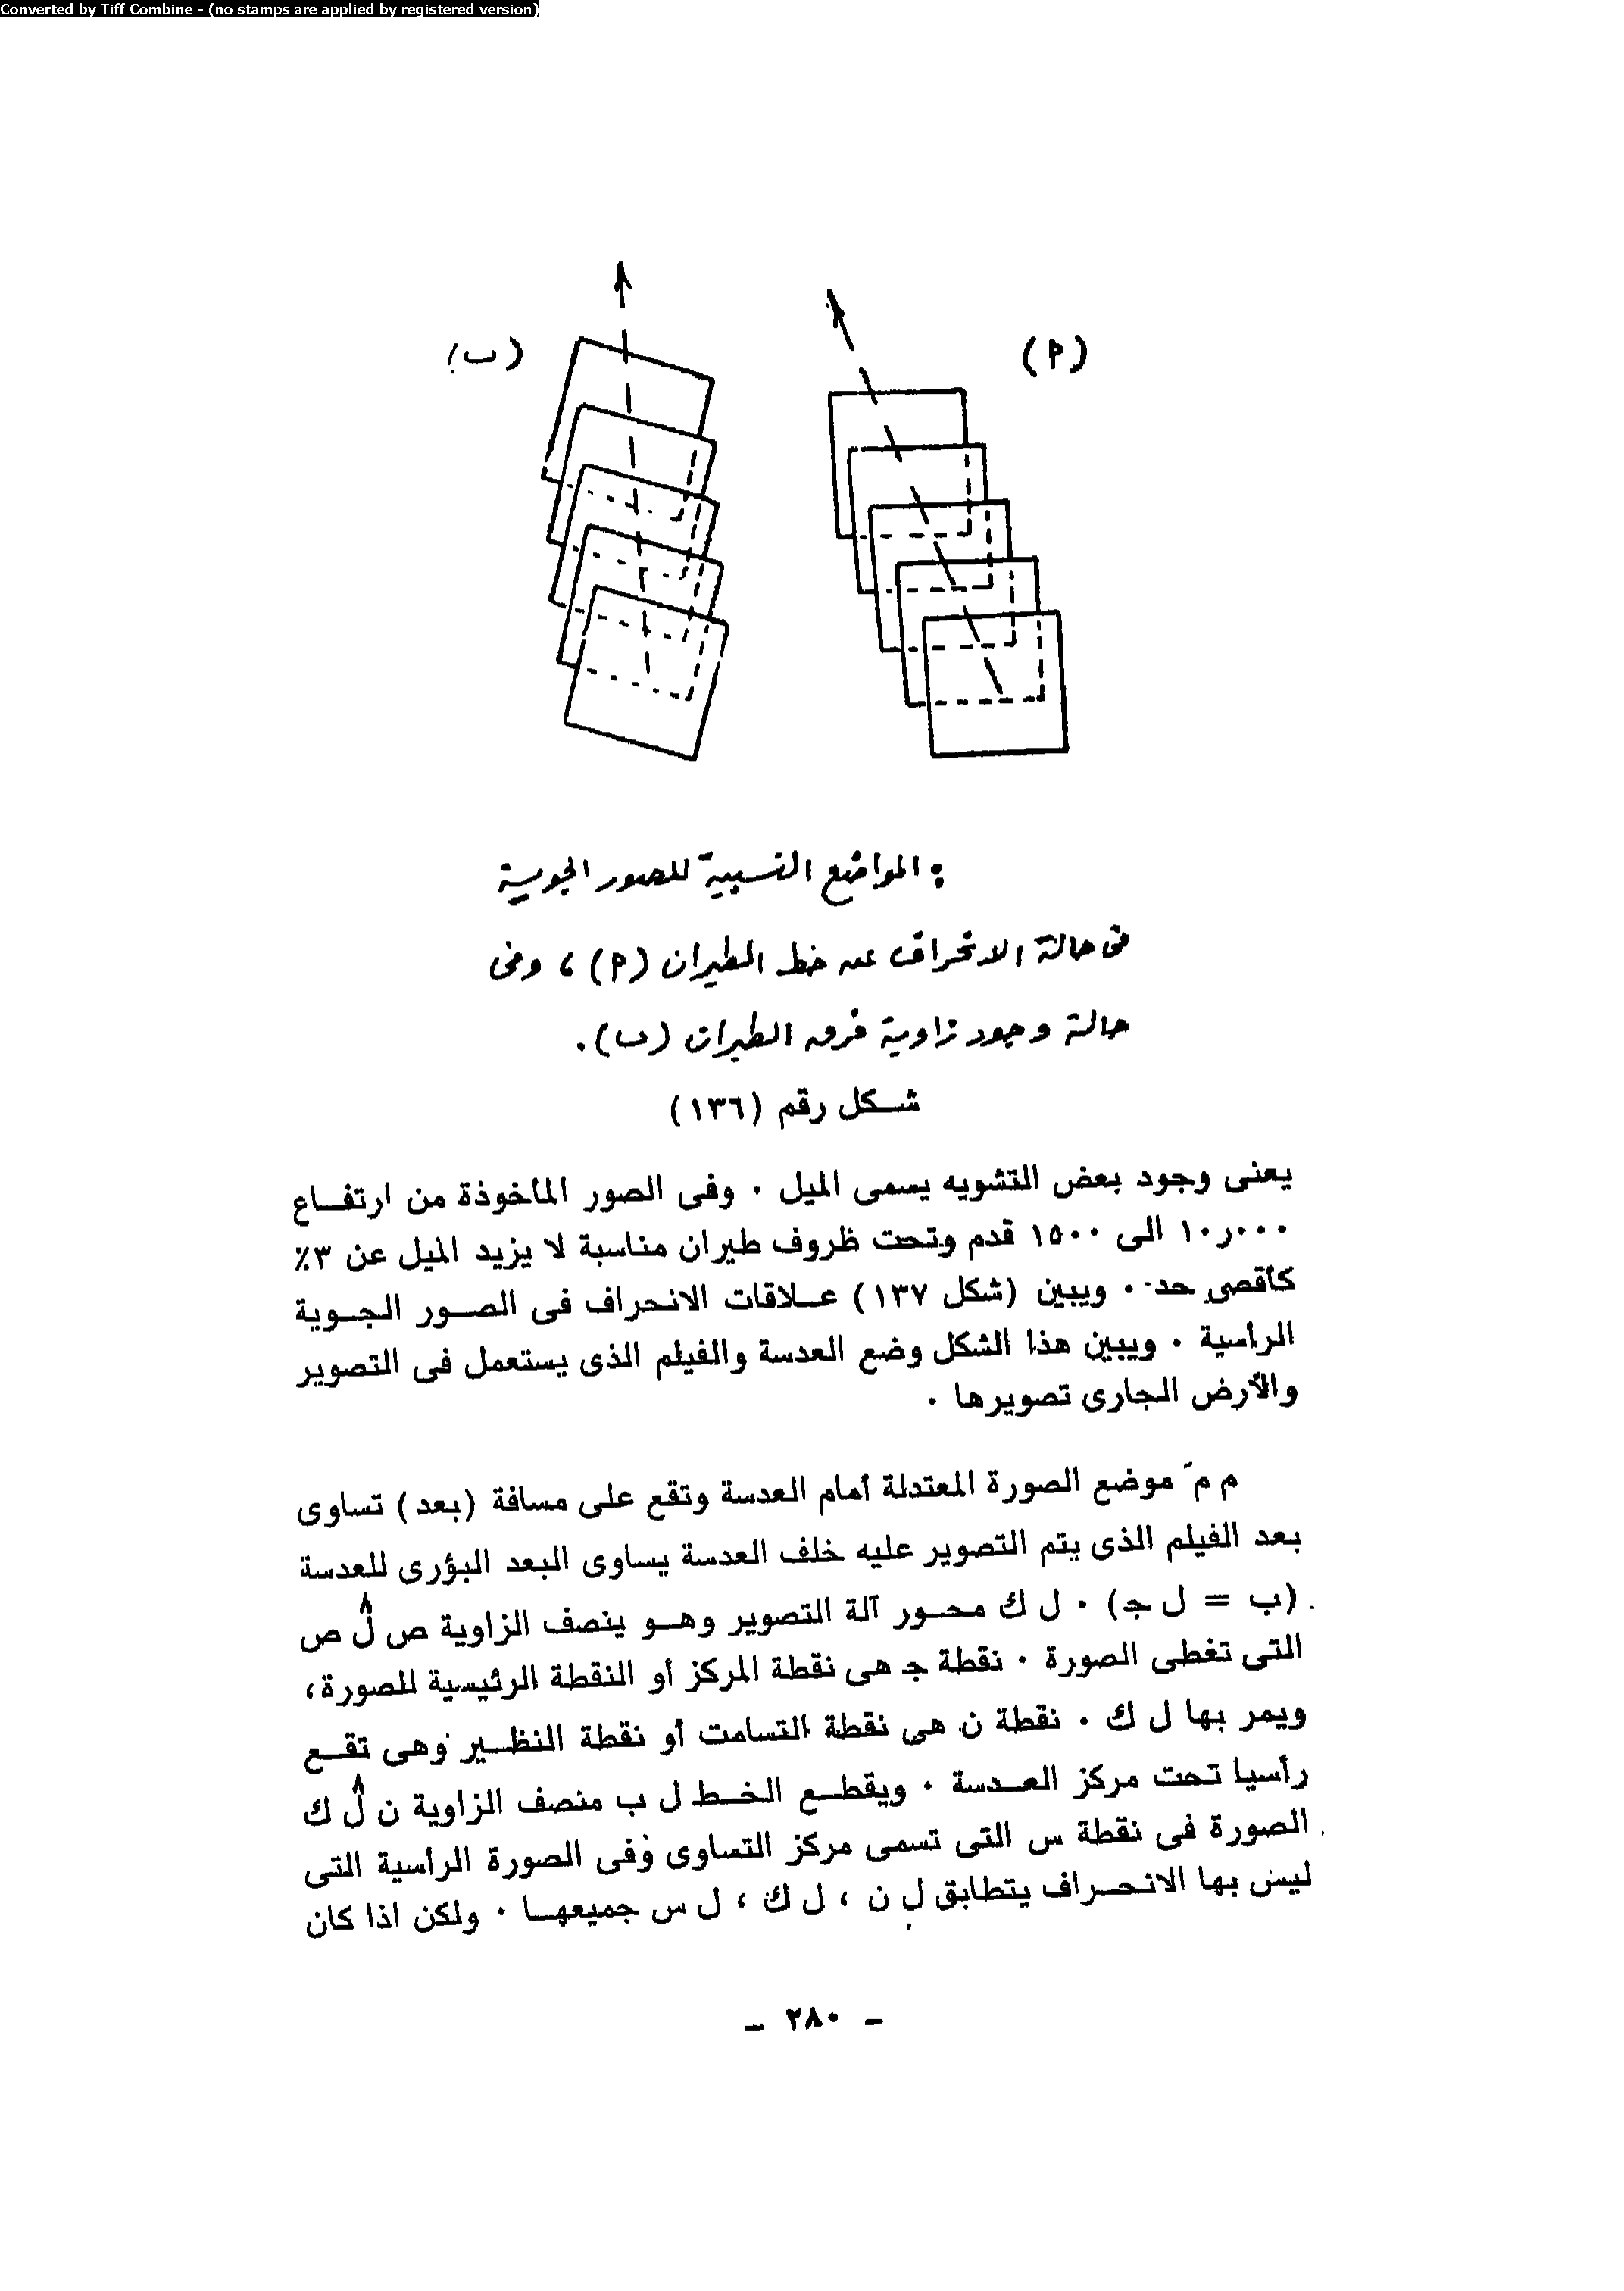 Converted by Tiff Combine - (no stamps are applied by registered version)
(أ)
(ب)
: المواضع النسبية للصور الجوية
فى حالة الانحراف عن خط الطيران (أ) ، وفى
حالة وجود زاوية فرق الطيران (ب).
شــكل رقم (١٣٦)
يعنى وجود بعض التشويه يسمى الميل ٠ وفى الصور المأخوذة من ارتفــاع
١٠ر٠٠٠ الى ١٥٠٠ قدم وتحت ظروف طيران مناسبة لا يزيد الميل عن ٣٪
كأقصى حد ٠ ويبين (شكل ١٣٧) عــلاقات الانحراف فى الصــور الجــوية
الرأسية ٠ ويبين هذا الشكل وضع العدسة والفيلم الذى يستعمل فى التصوير
والأرض الجارى تصويرها ٠
م مَ موضع الصورة المعتدلة أمام العدسة وتقع على مسافة (بعد) تساوى
بعد الفيلم الذى يتم التصوير عليه خلف العدسة يساوى البعد البؤرى للعدسة
(ب = ل جـ) ٠ ل ك محــور آلة التصوير وهــو ينصف الزاوية ص لَ ص
التى تغطى الصورة ٠ نقطة جـ هى نقطة المركز أو النقطة الرئيسية للصورة،
ويمر بها ل ك ٠ نقطة ن هى نقطة التسامت أو نقطة النظــير وهى تقــع
رأسيا تحت مركز العــدسة ٠ ويقطــع الخــط ل ب منصف الزاوية ن لَ ك
الصورة فى نقطة س التى تسمى مركز التساوى وفى الصورة الرأسية التى
ليس بها الانحــراف يتطابق ل ن ، ل ك ، ل س جميعهــا ٠ ولكن اذا كان
ــ ٢٨٠ ــ